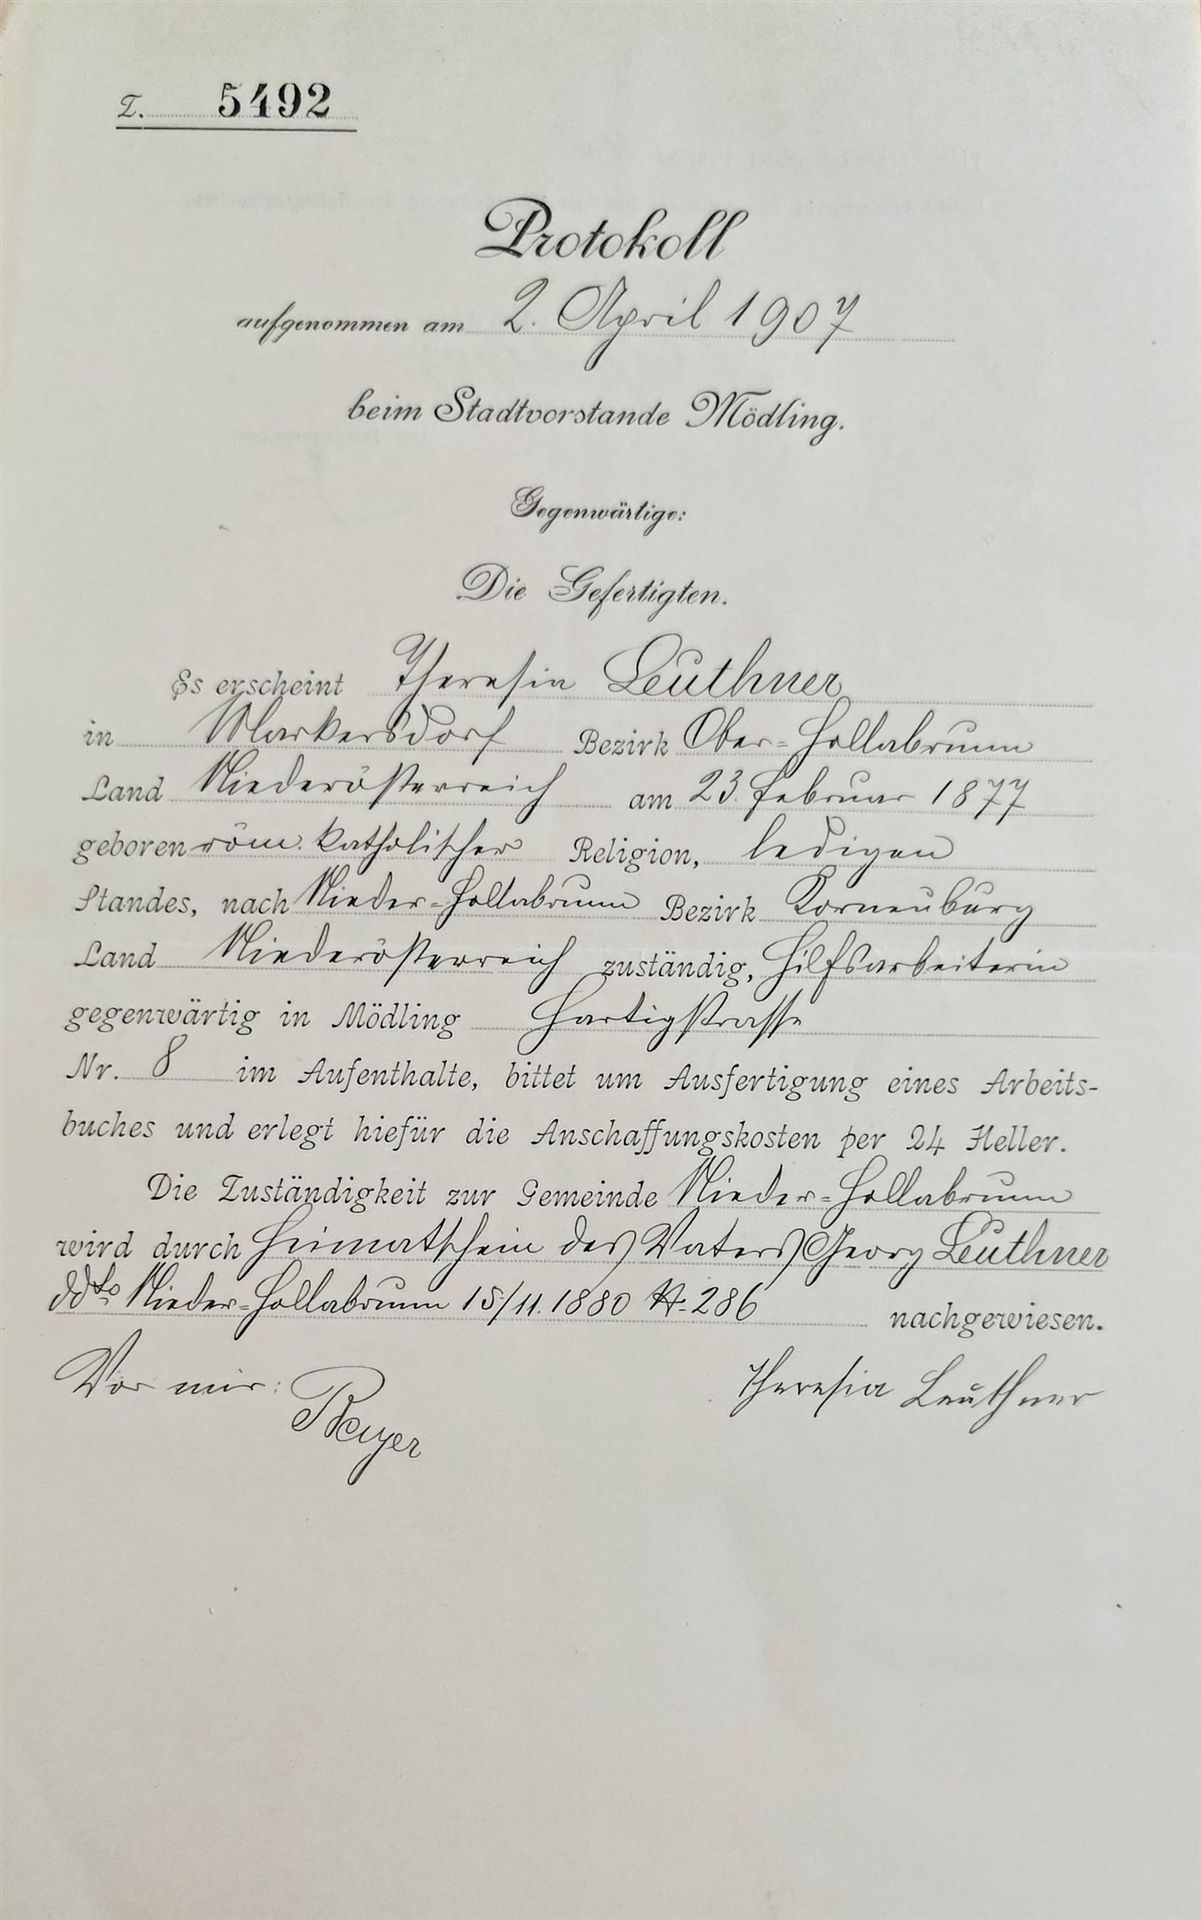 Z. 5492
Protokoll
aufgenommen am 2. April 1907
beim Stadtvorstande Mödling.
Gegenwärtige:
Die Gefertigten.
Es erscheint Theresia Leuthner
in Markersdorf Bezirk Ober-Hollabrunn
Land Niederösterreich am 23. Februar 1877
geboren röm. katholischer Religion, ledigen
Standes, nach Nieder-Hollabrunn Bezirk Korneuburg
Land Niederösterreich zuständig, Hilfsarbeiterin
gegenwärtig in Mödling Hartigstrasse
Nr. 8 im Aufenthalte, bittet um Ausfertigung eines Arbeits-
buches und erlegt hiefür die Anschaffungskosten per 24 Heller.
Die Zuständigkeit zur Gemeinde Nieder-Hollabrunn
wird durch Heimatschein des Vaters Georg Leuthner
ddto Nieder-Hollabrunn 15/11. 1880 286 nachgewiesen.
Vor mir: Theresia Leuthner